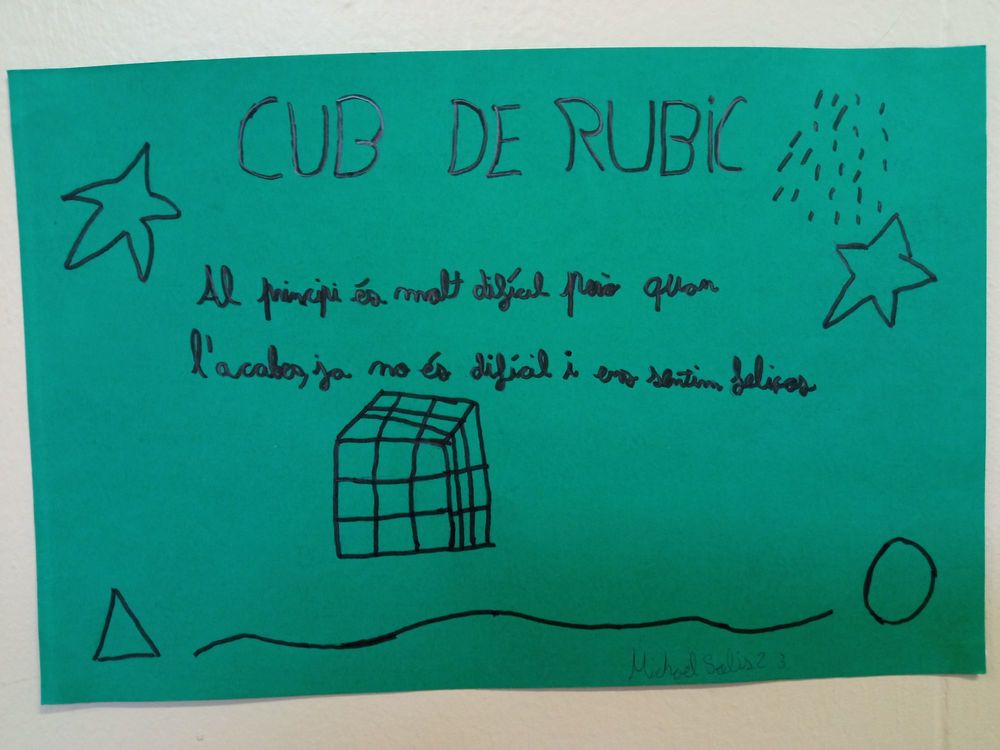 CUB DE RUBiC
Al principi és molt difícil però quan
l'acabes, ja no és difícil i ens sentim feliços
Michael Solis 2 3